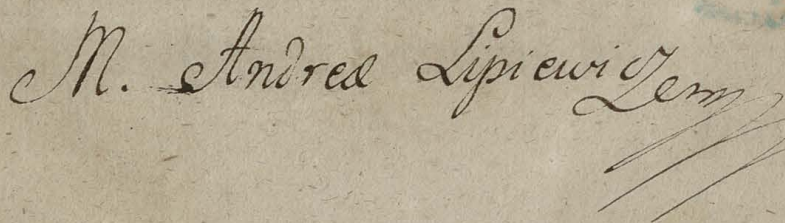 M. Andreæ Lipiewiczem